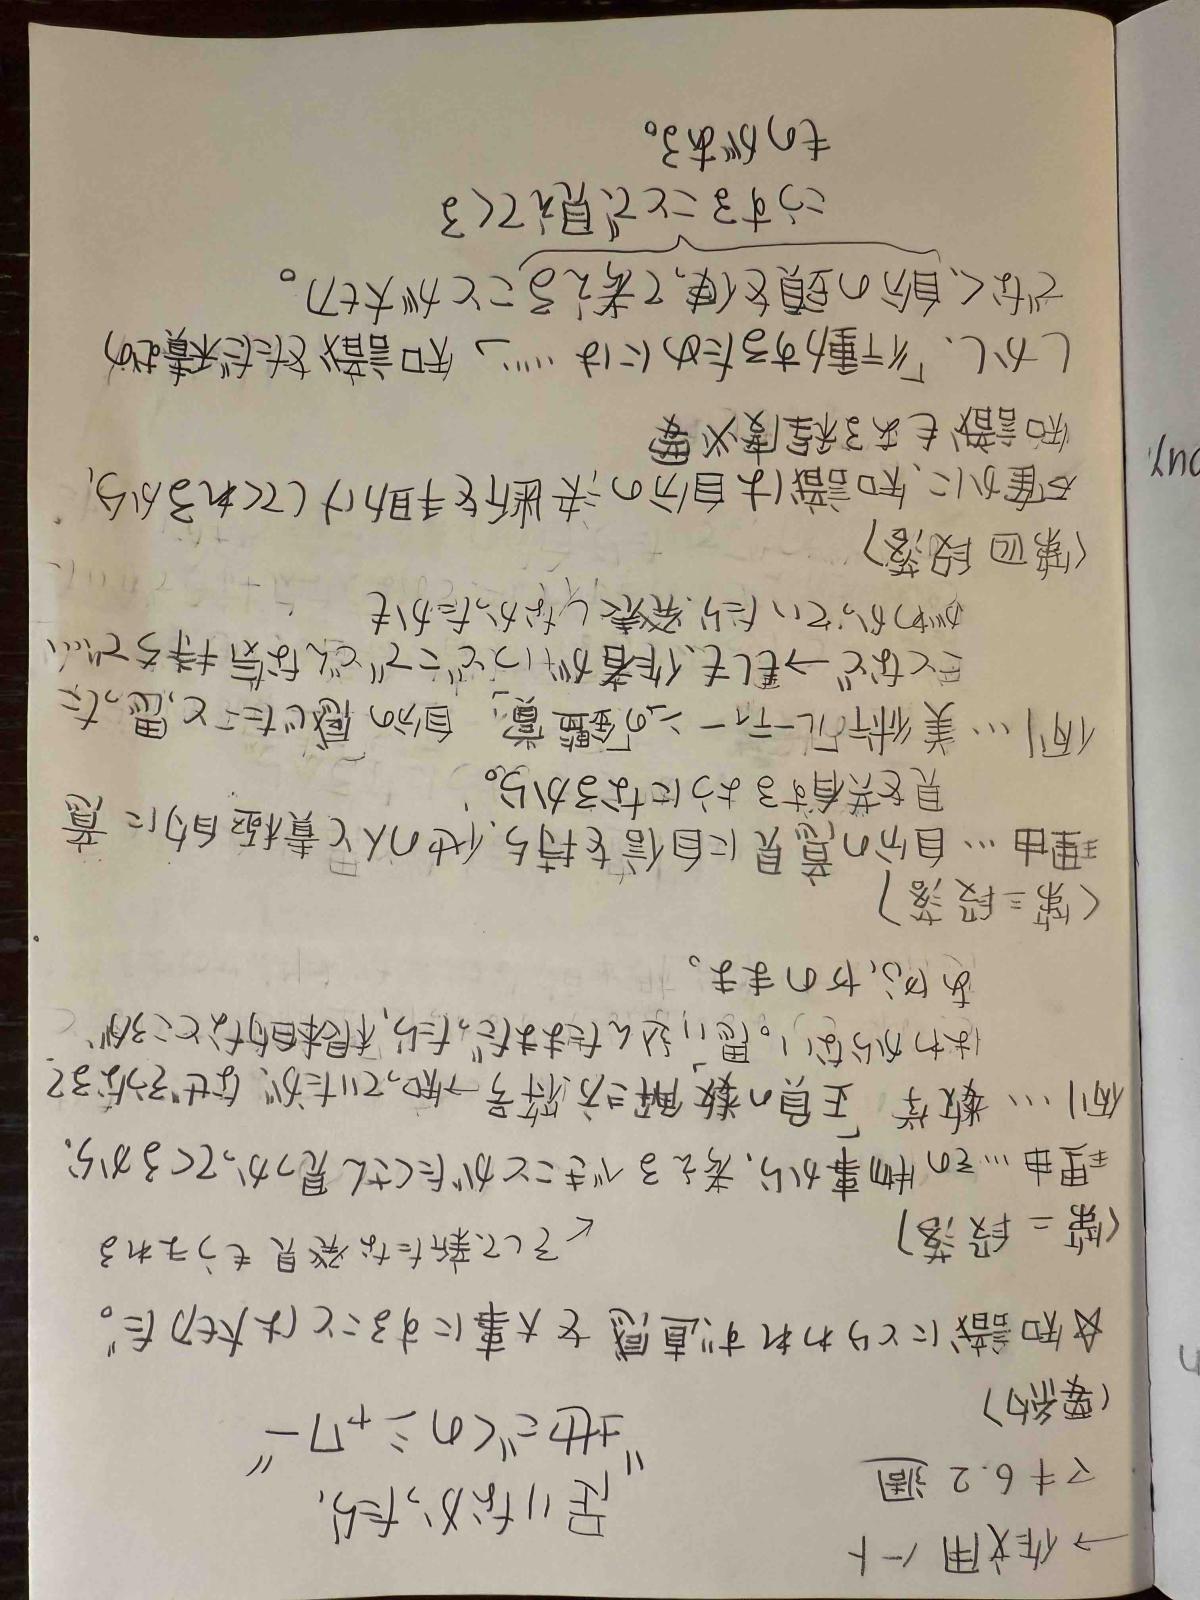 →作文用ノート
マキ6.2週
足りなかったら、
"地ごくのシャワー"
(要約)
☆知識にとらわれず直感を大事にすることは大切だ。
↳そして、新たな発見もうまれる
〈第二段落〉
理由…その物事から、考えるべきことがたくさん見つかってくるから。
例…数学「正負の数」解=方符号→知っていたが、なぜそうなる?
はわからない。思い込んだままだったら、根本的なところが、
あやふやのまま。
〈第三段落〉
理由…自分の意見に自信を持ち、他の人と積極的に意
見を共有するようになるから。
例…美術「ルーティーンの鑑賞」自分の感じたこと、思った
ことなど→もしも、作者がいつどこでどんな気持ちで…
がわかっていたら、発表しなかったかも
〈第四段落〉
確かに、知識は自分の決断を手助けしてくれるから、
知識もある程度必要
しかし、「行動するためには……」知識をただ積むの
でなく、自分の頭を使って考えることが大切。
こうすることで見えてくる
ものがある。